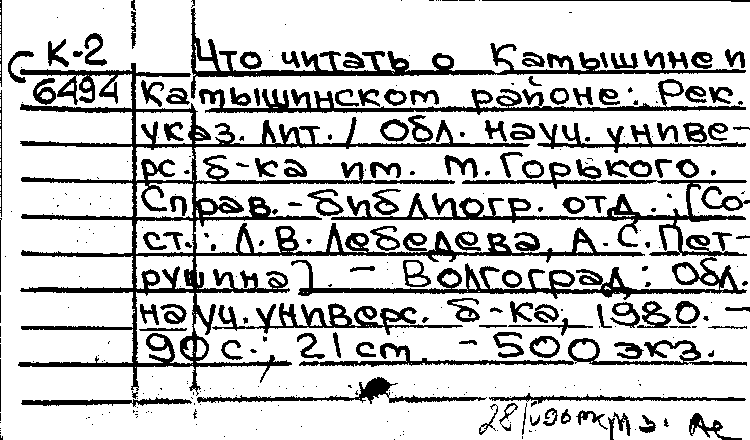 К-2 Что читать о Камышине и
6494 Камышинском районе: Рек.
указ. лит. / Обл. науч. униве-
рс. б-ка им. М. Горького.
Справ.-библиогр. отд.; [Со-
ст.: Л. В. Лебедева, А. С. Пет-
рушина]. - Волгоград: Обл.
науч. универс. б-ка, 1980. -
90 с.; 21 см. - 500 экз.
28/